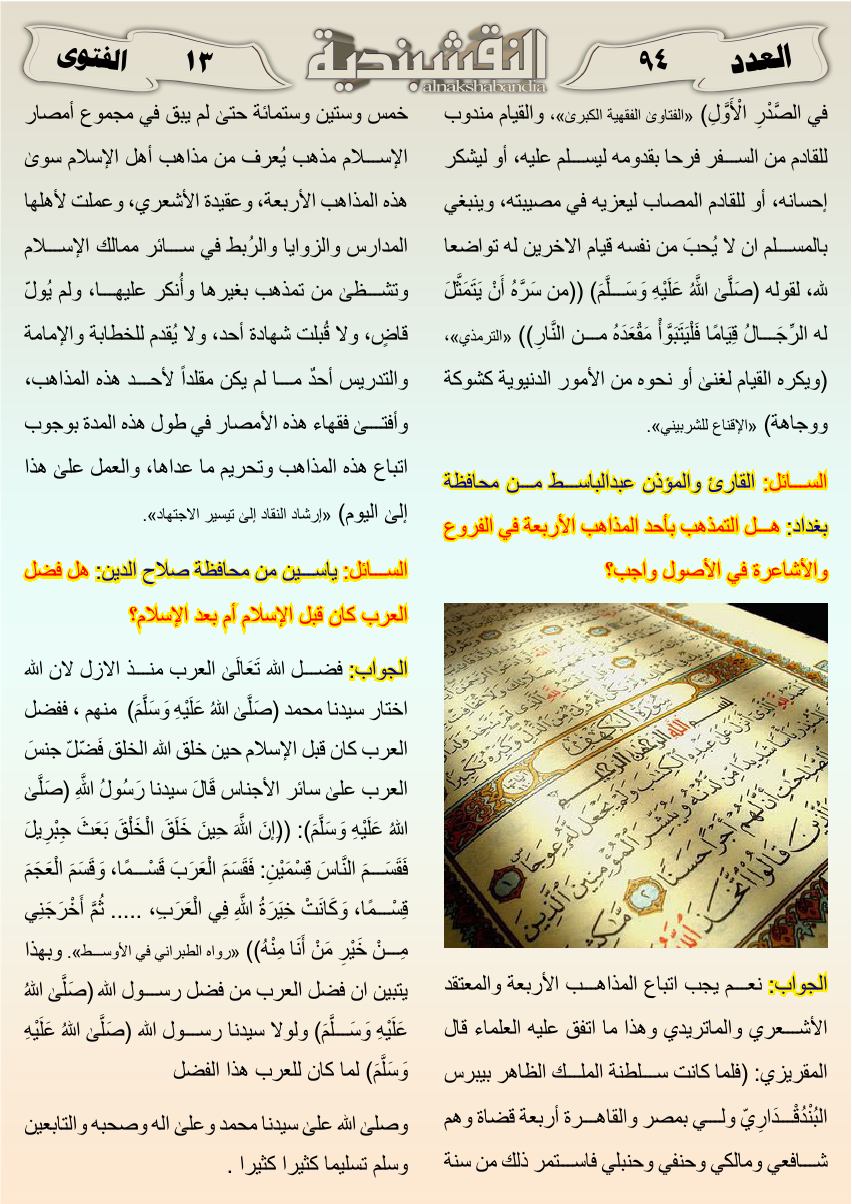 العدد
٩٤
النقشبندية
alnakshabandia
١٣
الفتوى
في الصَّدْرِ الْأَوَّلِ) «الفتاوىٰ الفقهية الكبرىٰ»، والقيام مندوب
للقادم من السـفر فرحا بقدومه ليسـلم عليه، أو ليشكر
إحسانه، أو للقادم المصاب ليعزيه في مصيبته، وينبغي
بالمسـلم ان لا يُحبَ من نفسه قيام الاخرين له تواضعا
لله، لقوله (صَلَّىٰ اللهُ عَلَيْهِ وَسَـلَّمَ) ((من سَرَّهُ أَنْ يَتَمَثَّلَ
له الرِّجَـالُ قِيَامًا فَلْيَتَبَوَّأْ مَقْعَدَهُ مـن النَّارِ)) «الترمذي»،
(ويكره القيام لغنىٰ أو نحوه من الأمور الدنيوية كشوكة
ووجاهة) «الإقناع للشربيني».
السـائل: القارئ والمؤذن عبدالباسـط مـن محافظة
بغداد: هـل التمذهب بأحد المذاهب الأربعة في الفروع
والأشاعرة في الأصول واجب؟
الجواب: نعـم يجب اتباع المذاهـب الأربعة والمعتقد
الأشـعري والماتريدي وهذا ما اتفق عليه العلماء قال
المقريزي: (فلما كانت سـلطنة الملـك الظاهر بيبرس
البُنْدُقْـدَارِيّ ولـي بمصر والقاهرة أربعة قضاة وهم
شـافعي ومالكي وحنفي وحنبلي فاسـتمر ذلك من سنة
خمس وستين وستمائة حتىٰ لم يبق في مجموع أمصار
الإسـلام مذهب يُعرف من مذاهب أهل الإسلام سوىٰ
هذه المذاهب الأربعة، وعقيدة الأشعري، وعملت لأهلها
المدارس والزوايا والرُبط في سـائر ممالك الإسـلام
وتشـظىٰ من تمذهب بغيرها وأُنكر عليهـا، ولم يُولّ
قاضٍ، ولا قُبلت شهادة أحد، ولا يُقدم للخطابة والإمامة
والتدريس أحدٌ مـا لم يكن مقلداً لأحـد هذه المذاهب،
وأفتـىٰ فقهاء هذه الأمصار في طول هذه المدة بوجوب
اتباع هذه المذاهب وتحريم ما عداها، والعمل علىٰ هذا
إلىٰ اليوم) «إرشاد النقاد إلىٰ تيسير الاجتهاد».
السـائل: ياسـين من محافظة صلاح الدين: هل فضل
العرب كان قبل الإسلام أم بعد الإسلام؟
الجواب: فضـل الله تَعَالَىٰ العرب منـذ الازل لان الله
اختار سيدنا محمد (صَلَّىٰ اللهُ عَلَيْهِ وَسَلَّمَ) منهم ، ففضل
العرب كان قبل الإسلام حين خلق الله الخلق فَضّلّ جنسَ
العرب علىٰ سائر الأجناس قَالَ سيدنا رَسُولُ اللَّهِ (صَلَّىٰ
اللهُ عَلَيْهِ وَسَلَّمَ): ((إِنَ اللَّهَ حِينَ خَلَقَ الْخَلْقَ بَعَثَ جِبْرِيلَ
فَقَسَـمَ النَّاسَ قِسْمَيْنِ: فَقَسَمَ الْعَرَبَ قَسْـمًا، وَقَسَمَ الْعَجَمَ
قِسْـمًا، وَكَانَتْ خِيَرَةُ اللَّهِ فِي الْعَرَبِ، ..... ثُمَّ أَخْرَجَنِي
مِـنْ خَيْرِ مَنْ أَنَا مِنْهُ)) «رواه الطبراني في الأوسـط». وبهذا
يتبين ان فضل العرب من فضل رسـول الله (صَلَّىٰ اللهُ
عَلَيْهِ وَسَـلَّمَ) ولولا سيدنا رسـول الله (صَلَّىٰ اللهُ عَلَيْهِ
وَسَلَّمَ) لما كان للعرب هذا الفضل
وصلىٰ الله علىٰ سيدنا محمد وعلىٰ اله وصحبه والتابعين
وسلم تسليما كثيرا كثيرا .